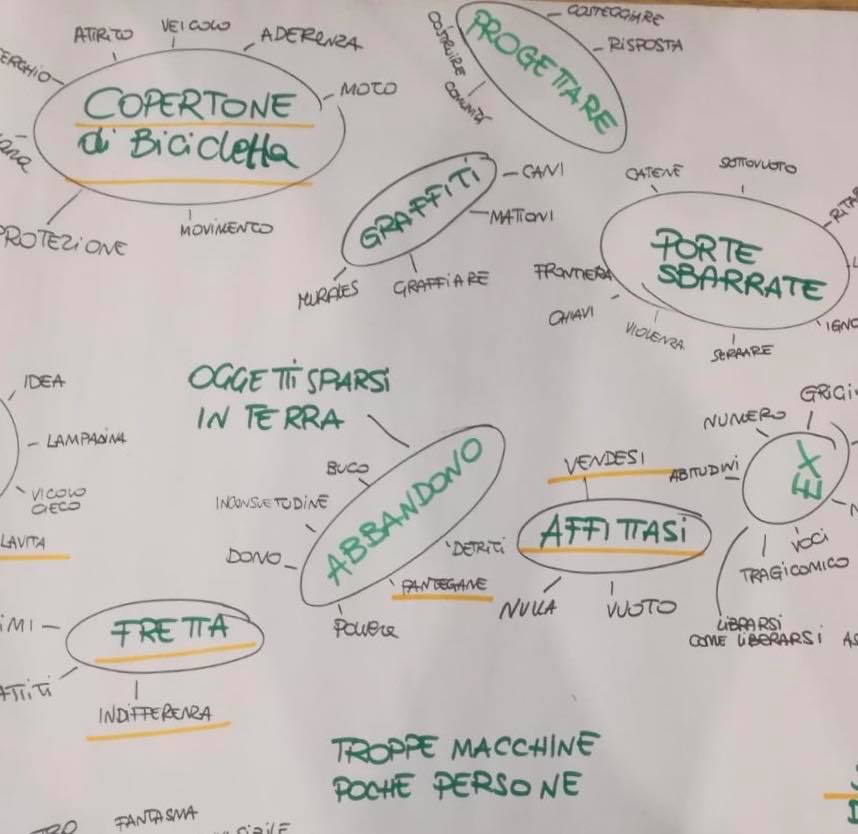 ATTRITO
VEICOLO
ADERENZA
MOTO
COPERTONE
di Bicicletta
PROTEZIONE
MOVIMENTO
COSTEGGIARE
RISPOSTA
PROGETTARE
COSTRUIRE
COMUNITÀ
GRAFFITI
CANI
MATTONI
MURALES
GRAFFIARE
CATENE
SOTTOVUOTO
PORTE
SBARRATE
FRONTIERA
CHIAVI
VIOLENZA
SEPARARE
IDEA
LAMPADINA
VICOLO
CIECO
LAVITA
OGGETTI SPARSI
IN TERRA
BUCO
INCONSUETUDINE
DONO
ABBANDONO
DETRITI
PANTEGANE
POLVERE
VENDESI
AFFITTASI
NULLA
VUOTO
NUMERO
ABITUDINI
EX
VOCI
TRAGICOMICO
LIBRARSI
COME LIBERARSI
FRETTA
INDIFFERENZA
TROPPE MACCHINE
POCHE PERSONE
FANTASMA